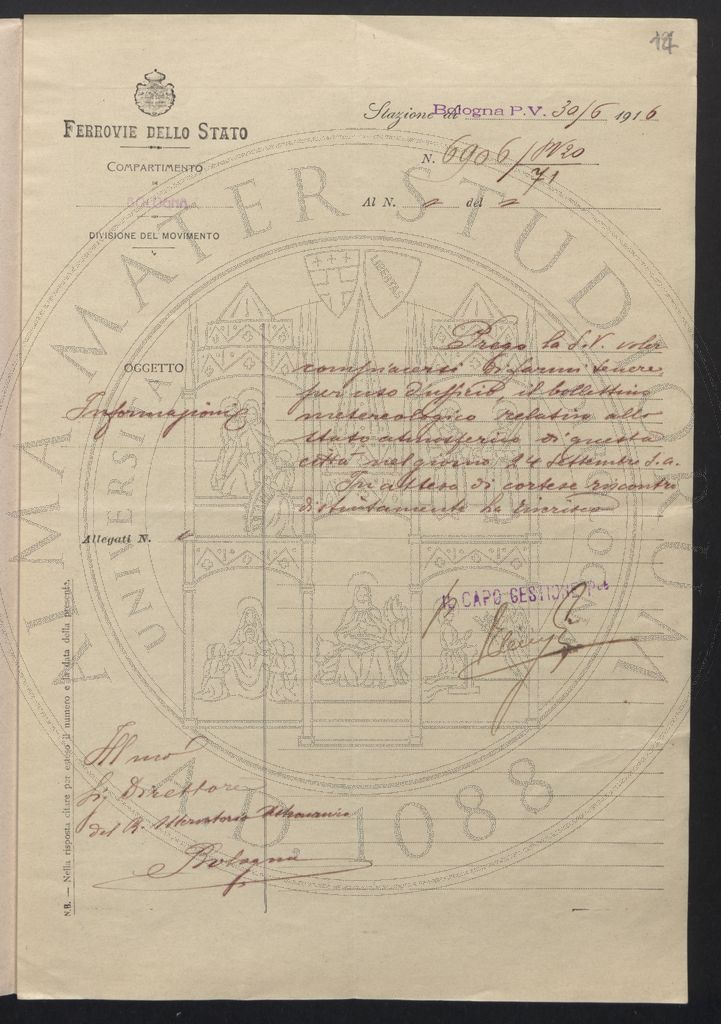 14
FERROVIE DELLO STATO
COMPARTIMENTO
DI
BOLOGNA
DIVISIONE DEL MOVIMENTO
Stazione di Bologna P.V. 30/6 1916
N. 6906/
71
Al N. " del "
OGGETTO
Informazioni
Allegati N. "
Prego la S.V. voler
compiacersi di farmi tenere,
per uso d'ufficio, il bollettino
metereologico relativo allo
stato atmosferico di questa
città nel giorno 24 Settembre s.a.
In attesa di cortese riscontro
distintamente La riverisco
IL CAPO GESTIONE P.V.
Ill mo
Sig Direttore
del R. Osservatorio Astronomico
Bologna
N.B. — Nella risposta citare per esteso il numero e la data della presente.
ALMA MATER STUDIORUM
UNIVERSITÀ DI BOLOGNA
LIBERTAS
A.D. 1088